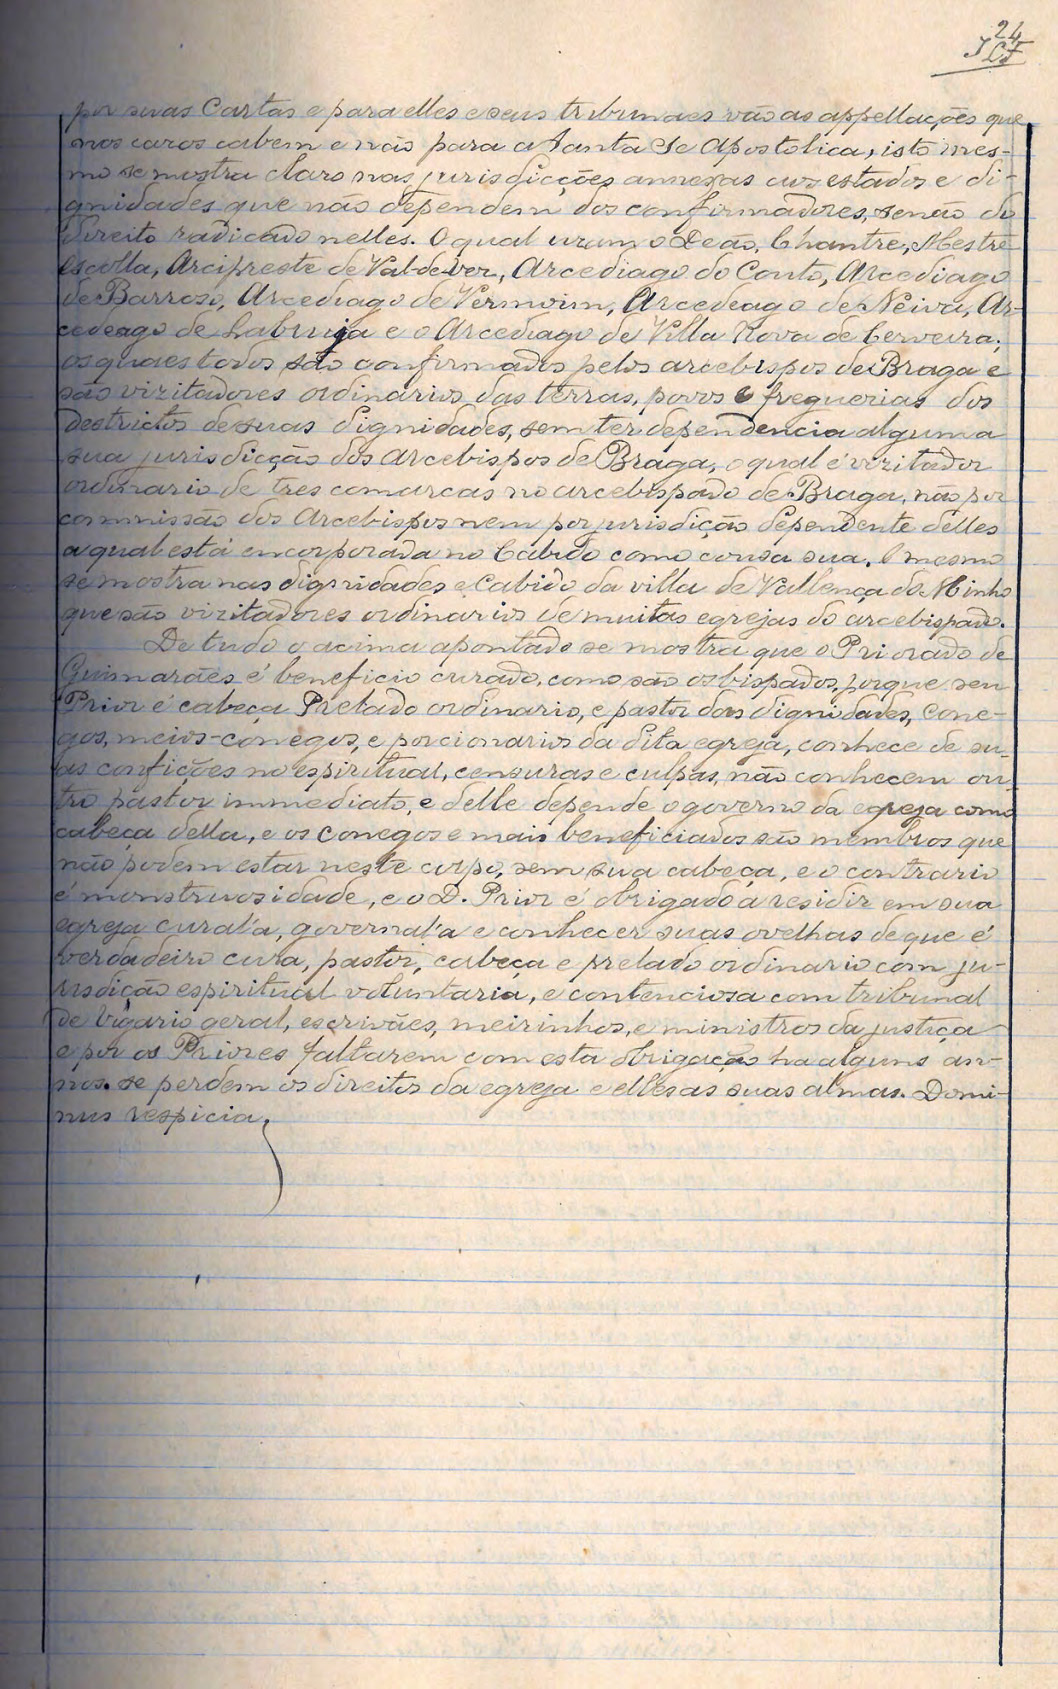 24
JCF
por suas Cartas e para elles e seus tribunaes vão as appellações que
nos cazos cabem e não para a Santa Sé Apostolica, isto mes-
mo se mostra claro nas jurisdicções annexas aos estados e di-
gnidades que não dependem dos confirmadores, senão do
direito radicado nelles. O qual uzam o Deão, Chantre, Mestre
escolla, Arcipreste de Val-de-vez, Arcediago do Couto, Arcediago
de Barrozo, Arcediago de Vermoim, Arcedeago de Neiva, Ar-
cedeago de Labruja e o Arcediago de Villa Nova de Cerveira;
os quaes todos são confirmados pelos arcebispos de Braga e
são vizitadores ordinarios das terras, povos e freguezias dos
destrictos de suas dignidades, sem ter dependencia alguma
sua jurisdicção dos Arcebispos de Braga, o qual é vizitador
ordinario de tres comarcas no arcebispado de Braga, não por
commissão dos Arcebispos nem por jurisdição dependente delles
a qual está encorporada no Cabido como cousa sua. O mesmo
se mostra nas dignidades e Cabido da villa de Vallença do Minho
que são vizitadores ordinarios de muitas egrejas do arcebispado.
De tudo o acima apontado se mostra que o Priorado de
Guimarães é beneficio curado, como são os bispados, porque seu
Prior é cabeça Prelado ordinario, e pastor das dignidades, Cone-
gos, meios-conegos, e porcionarios da dita egreja, conhece de su-
as confições no espiritual, censuras e culpas, não conhecem ou-
tro pastor immediato, e delle depende o governo da egreja como
cabeça della, e os conegos e mais beneficiados são membros que
não podem estar neste corpo, sem sua cabeça, e o contrario
é monstruosidade, e o D. Prior é obrigado a residir em sua
egreja cural'a, governal'a e conhecer suas ovelhas de que é
verdadeiro cura, pastor, cabeça e prelado ordinario com ju-
risdição espiritual voluntaria, e contenciosa com tribunal
de vigario geral, escrivães, meirinhos, e ministros da justiça
e por os Priores faltarem com esta obrigação ha alguns an-
nos. se perdem os direitos da egreja e elles as suas almas. Domi-
nus respicia.